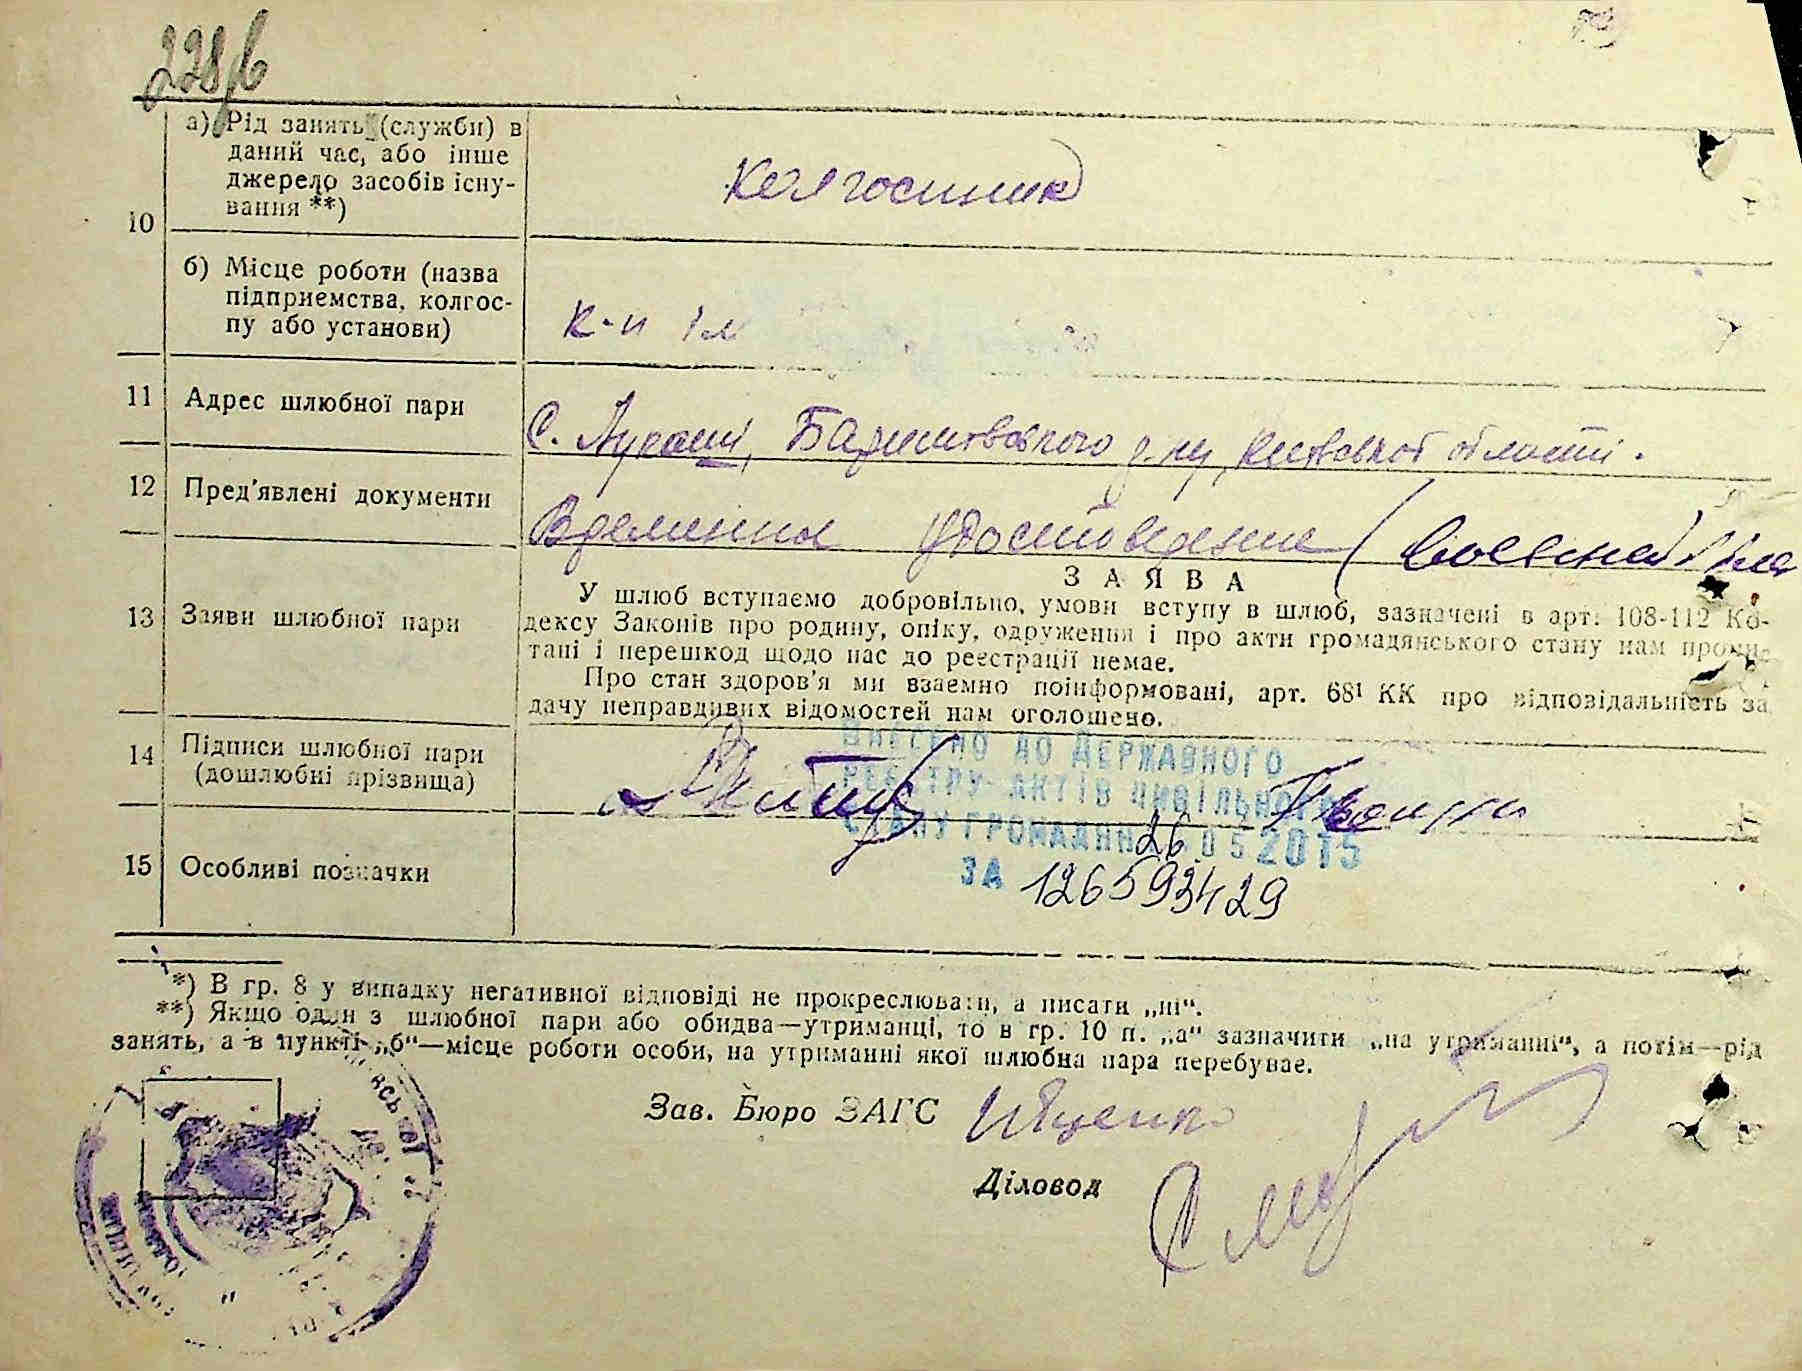 228
10
а) Рід занять (служби) в
даний час, або інше
джерело засобів існу-
вання **)
Колгоспник
б) Місце роботи (назва
підприємства, колгос-
пу або установи)
к-п ім
11 Адрес шлюбної пари
с. Лукаші, Баришівського р-ну Київської області.
12 Пред'явлені документи
Временна удостоведение (
13 Заяви шлюбної пари
ЗАЯВА
У шлюб вступаємо добровільно, умови вступу в шлюб, зазначені в арт. 108-112 Ко-
дексу Законів про родину, опіку, одруження і про акти громадянського стану нам прочи-
тані і перешкод щодо нас до реєстрації немає.
Про стан здоров'я ми взаємно поінформовані, арт. 68¹ КК про відповідальність за
дачу неправдивих відомостей нам оголошено.
14 Підписи шлюбної пари
(дошлюбні прізвища)
Внесено до Державного
реєстру актів цивільного
стану громадян 26 05 2015
за 126593429
15 Особливі позначки
*) В гр. 8 у випадку негативної відповіді не прокреслювати, а писати „ні“.
**) Якщо один з шлюбної пари або обидва—утриманці, то в гр. 10 п. „а“ зазначити „на утриманні“, а потім—рід
занять, а в пункті „б“—місце роботи особи, на утриманні якої шлюбна пара перебуває.
Зав. Бюро ЗАГС Яценко
Діловод